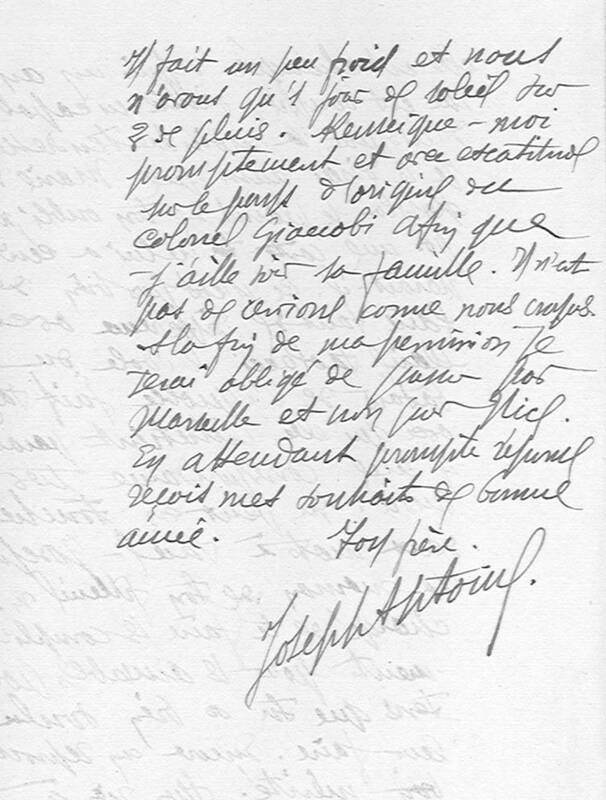 Il fait un peu froid et nous
n'avons qu'1 jour de soleil sur
3 de pluie. Renseigne-moi
promptement et avec exactitude
sur le pays d'origine du
Colonel Giacobi afin que
j'aille voir sa famille. Il n'est
pas de comme nous croyons.
A la fin de ma permission je
serai obligé de passer par
Marseille et non par Nice.
En attendant prompte réponse
reçois mes souhaits de bonne
année. Ton frère.
Joseph Antoine.